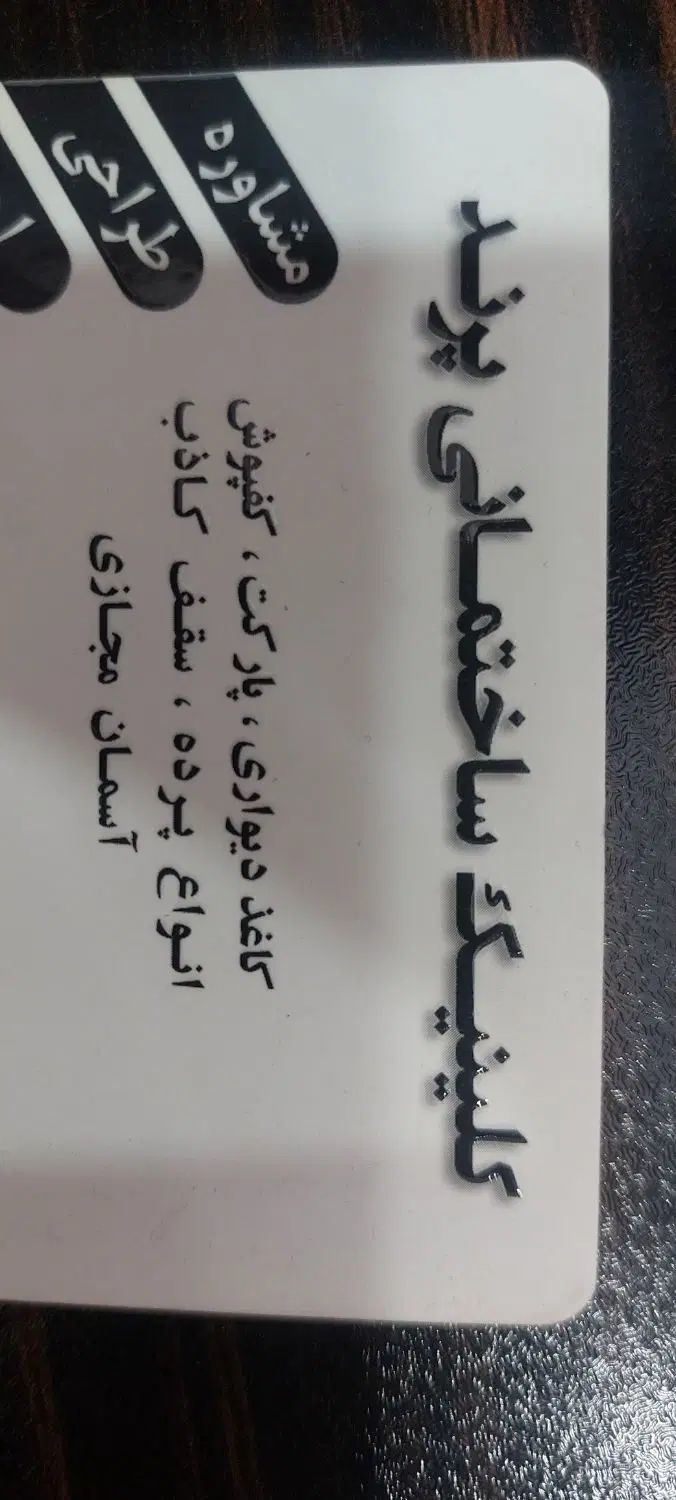 کلینیک ساختمانی پرند
مشاوره
طراحی
کاغذ دیواری، پارکت، کفپوش
انواع پرده، سقف کاذب
آسمان مجازی